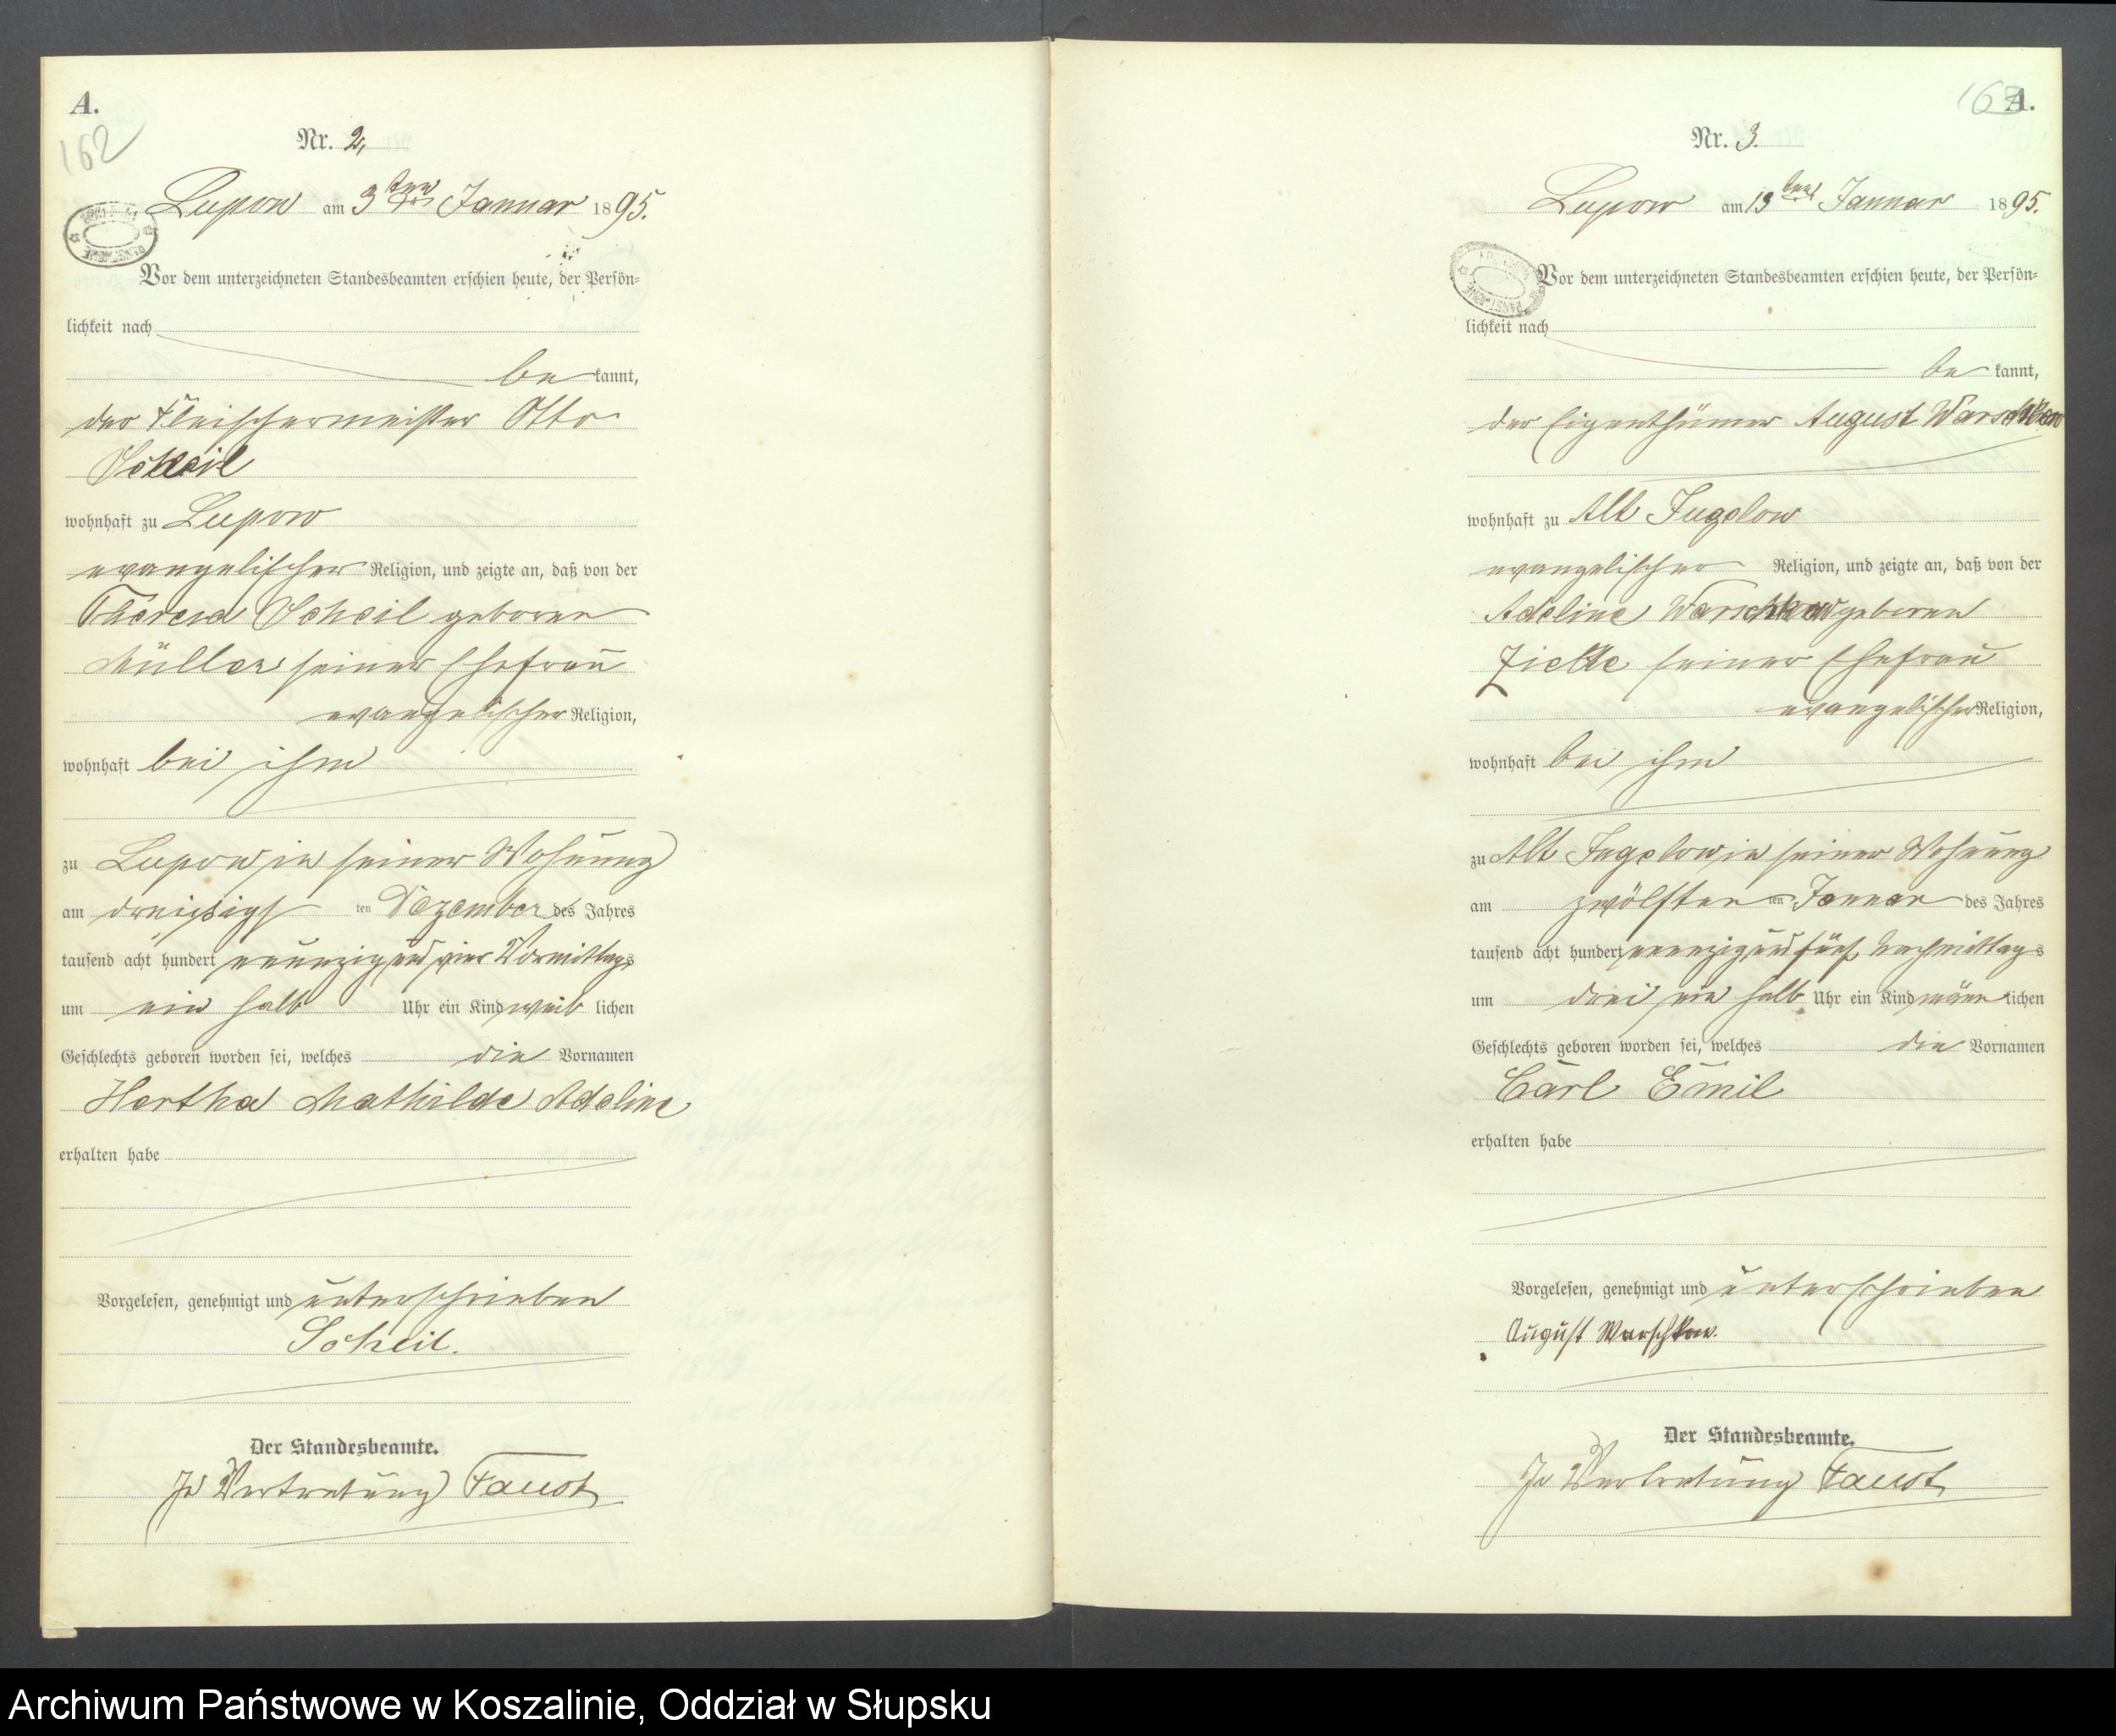 A.
162
Nr. 2,
Lupow am 3ten Januar 1895.
Vor dem unterzeichneten Standesbeamten erschien heute, der Persön-
lichkeit nach
be kannt,
der Fleischermeister Otto
Scheil
wohnhaft zu Lupow
evangelischer Religion, und zeigte an, daß von der
Theresa Scheil geboren
Müller seiner Ehefrau
evangelischer Religion,
wohnhaft bei ihm
zu Lupow, in seiner Wohnung
am dreißigsten Dezember des Jahres
tausend acht hundert neunzig und vier Vormittags
um ein halb Uhr ein Kind weib lichen
Geschlechts geboren worden sei, welches die Vornamen
Hertha Mathilde Adeline
erhalten habe
Vorgelesen, genehmigt und unterschrieben
Scheil.
Der Standesbeamte.
In Vertretung Faust
A.
Nr. 3.
Lupow am 13ten Januar 1895.
Vor dem unterzeichneten Standesbeamten erschien heute, der Persön-
lichkeit nach
be kannt,
der Eigenthümer August Warschkow
wohnhaft zu Alt Jugelow
evangelischer Religion, und zeigte an, daß von der
Adeline Warschkow geboren
Zielke seiner Ehefrau
evangelischer Religion,
wohnhaft bei ihm
zu Alt Jugelow, in seiner Wohnung
am zwölften ten Januar des Jahres
tausend acht hundert neunzig und fünf Nachmittags
um drei ein halb Uhr ein Kind männ lichen
Geschlechts geboren worden sei, welches die Vornamen
Carl Emil
erhalten habe
Vorgelesen, genehmigt und unterschrieben
August Warschkow.
Der Standesbeamte.
In Vertretung Faust
Archiwum Państwowe w Koszalinie, Oddział w Słupsku